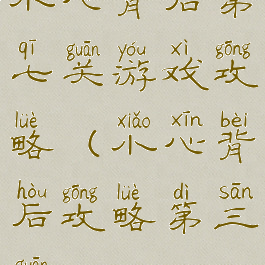 后 第
qī guān yóu xì gōng
七 关 游 戏 攻
lüè xiǎo xīn bèi
略 ( 小 心 背
hòu gōng lüè dì sān
后 攻 略 第 三
guān